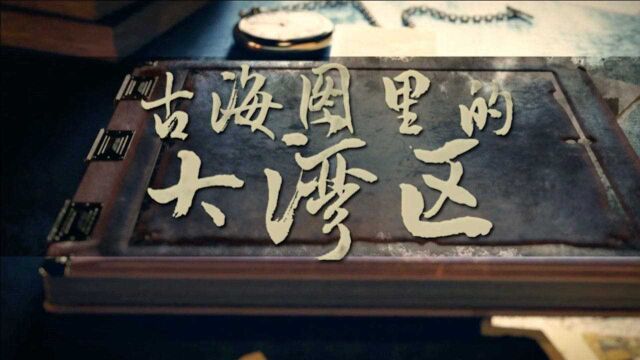 古海图里的
大湾区